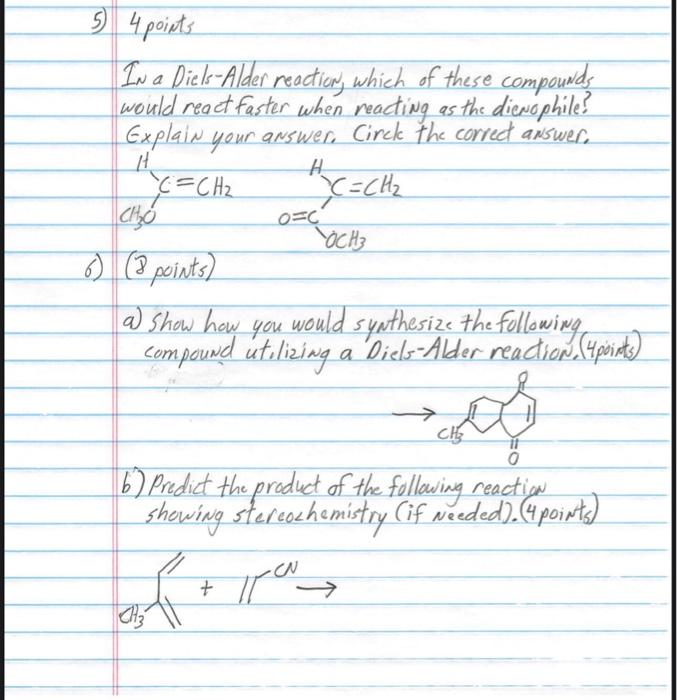 5) 4 points
In a Diels-Alder reaction, which of these compounds
would react faster when reacting as the dienophile?
Explain your answer. Circle the correct answer.
H H
C=CH2 C=CH2
CH3O O=C
OCH3
6) (8 points)
a) Show how you would synthesize the following
compound utilizing a Diels-Alder reaction. (4 points)
O
→
CH3
O
b) Predict the product of the following reaction
showing stereochemistry (if needed). (4 points)
+ CN →
CH3